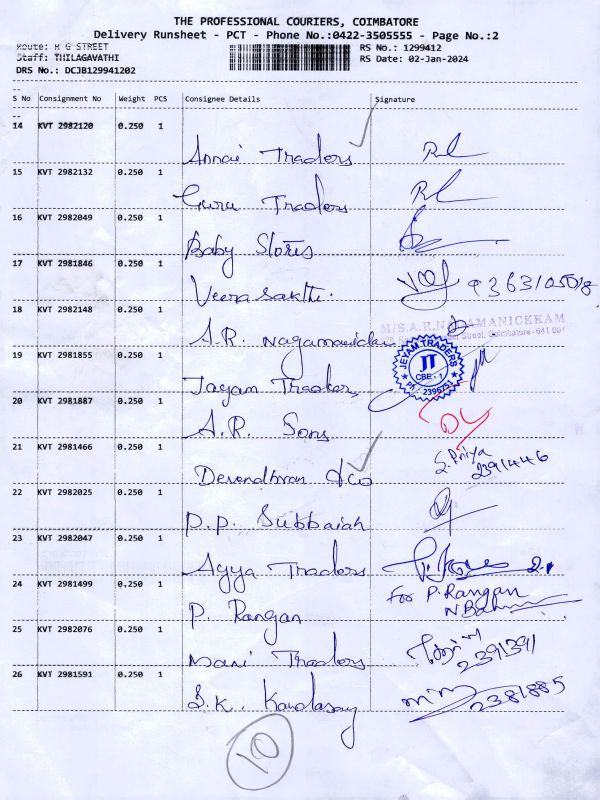 THE PROFESSIONAL COURIERS, COIMBATORE
Delivery Runsheet - PCT - Phone No.:0422-3505555 - Page No.:2
Route: R G STREET
Staff: THILAGAVATHI
DRS No.: DCJB129941202
RS No.: 1299412
RS Date: 02-Jan-2024
S No Consignment No Weight PCS Consignee Details Signature
14 KVT 2982120 0.250 1 Annai Traders
15 KVT 2982132 0.250 1 Guru Traders
16 KVT 2982049 0.250 1 Baby Stores
17 KVT 2981846 0.250 1 Veerasakthi 9363105018
18 KVT 2982148 0.250 1 A.R. Nagamanickam
M/S.A.R.NAGAMANICKKAM
Street, Coimbatore-641 001
19 KVT 2981855 0.250 1 Jayam Traders
JEYAM TRADERS JT CBE-1 PH: 2396751
20 KVT 2981887 0.250 1 A.R. Sons
21 KVT 2981466 0.250 1 Devendhran & Co S. Priya
2391446
22 KVT 2982025 0.250 1 P.P. Subbaiah
23 KVT 2982047 0.250 1 Ayya Traders
24 KVT 2981499 0.250 1 P. Rangan For P. Rangan
25 KVT 2982076 0.250 1 Mani Traders 2391391
26 KVT 2981591 0.250 1 S.K. Kandasamy 2381885
10